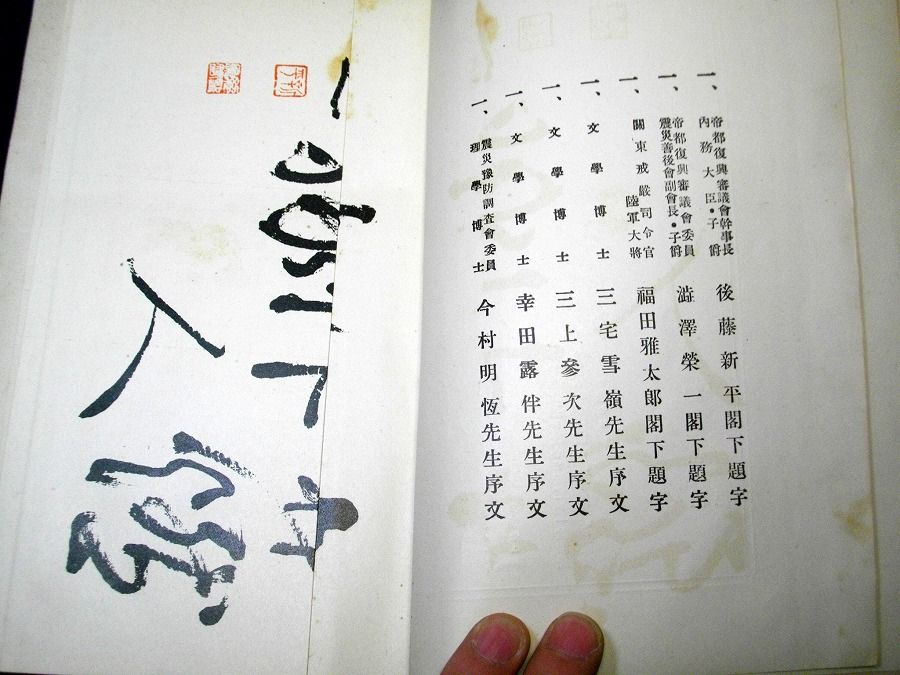 一、帝都復興審議會幹事長 內務大臣・子爵 後藤新平閣下題字
一、帝都復興審議會委員 震災善後會副會長・子爵 澁澤榮一閣下題字
一、關東戒嚴司令官 陸軍大將 福田雅太郎閣下題字
一、文學博士 三宅雪嶺先生序文
一、文學博士 三上參次先生序文
一、文學博士 幸田露伴先生序文
一、震災豫防調査會委員 理學博士 今村明恆先生序文
人